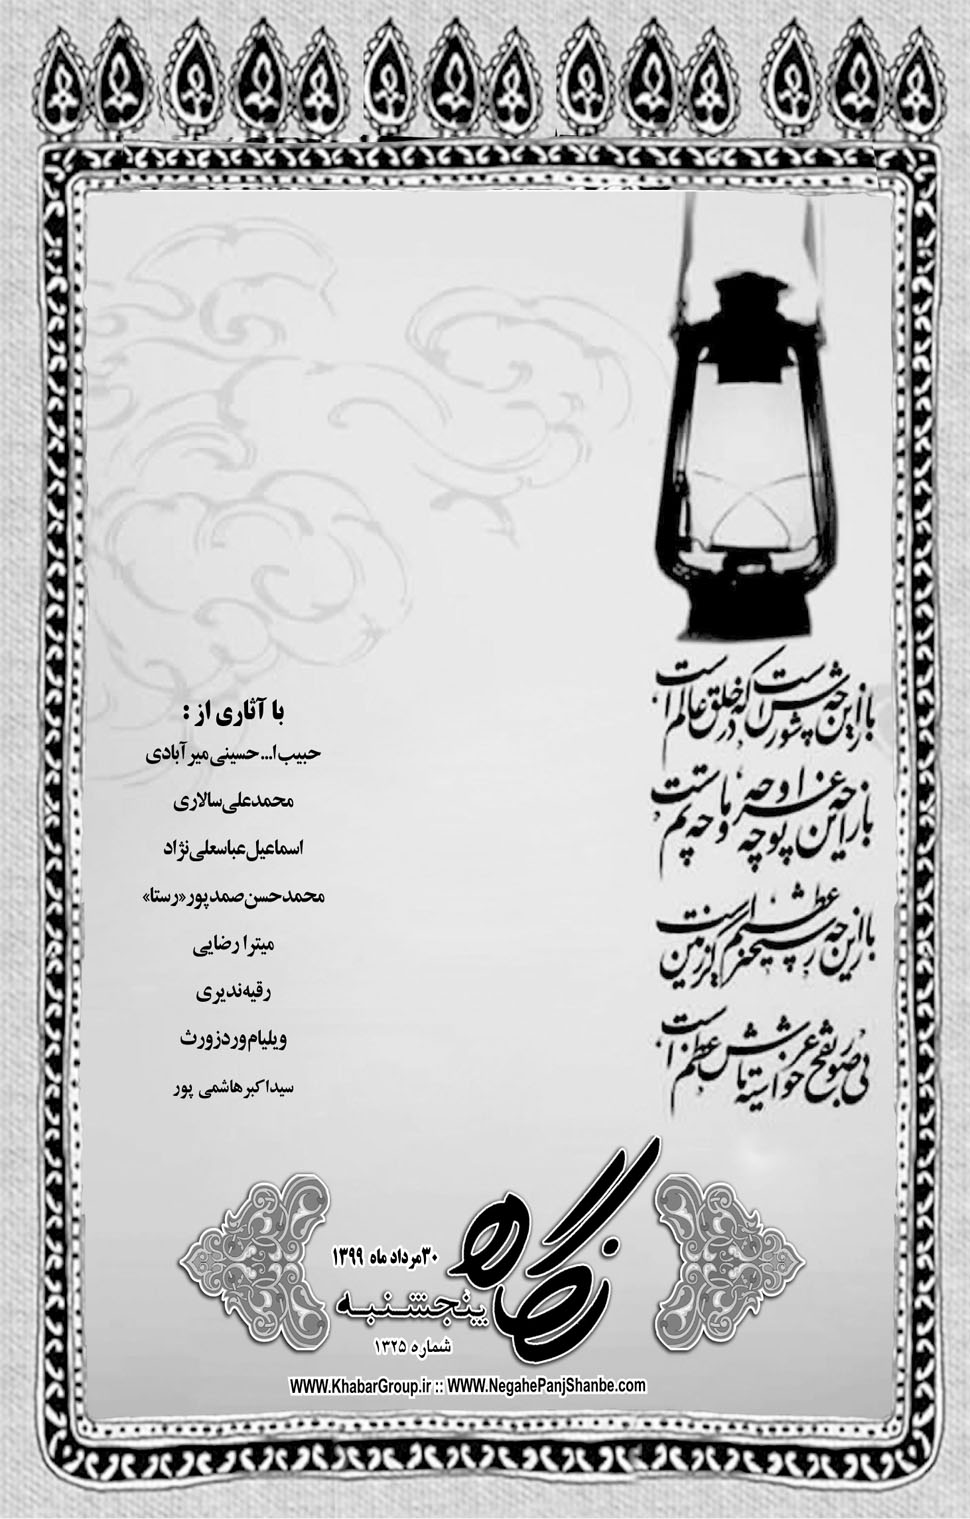 باز این چه شورش است که در خلق عالم است
باز این چه نوحه و چه عزا و چه ماتم است
باز این چه رستخیز عظیم است کز زمین
بی نفخ صور خواسته تا عرش اعظم است
با آثاری از :
حبیب ا... حسینی میرآبادی
محمدعلی سالاری
اسماعیل عباسعلی نژاد
محمدحسن صمدپور «رستا»
میترا رضایی
رقیه ندیری
ویلیام وردزورث
سیداکبر هاشمی پور
نگاه
۳۰ مرداد ماه ۱۳۹۹
پنجشنبه
شماره ۱۳۲۵
WWW.KhabarGroup.ir :: WWW.NegahePanjShanbe.com